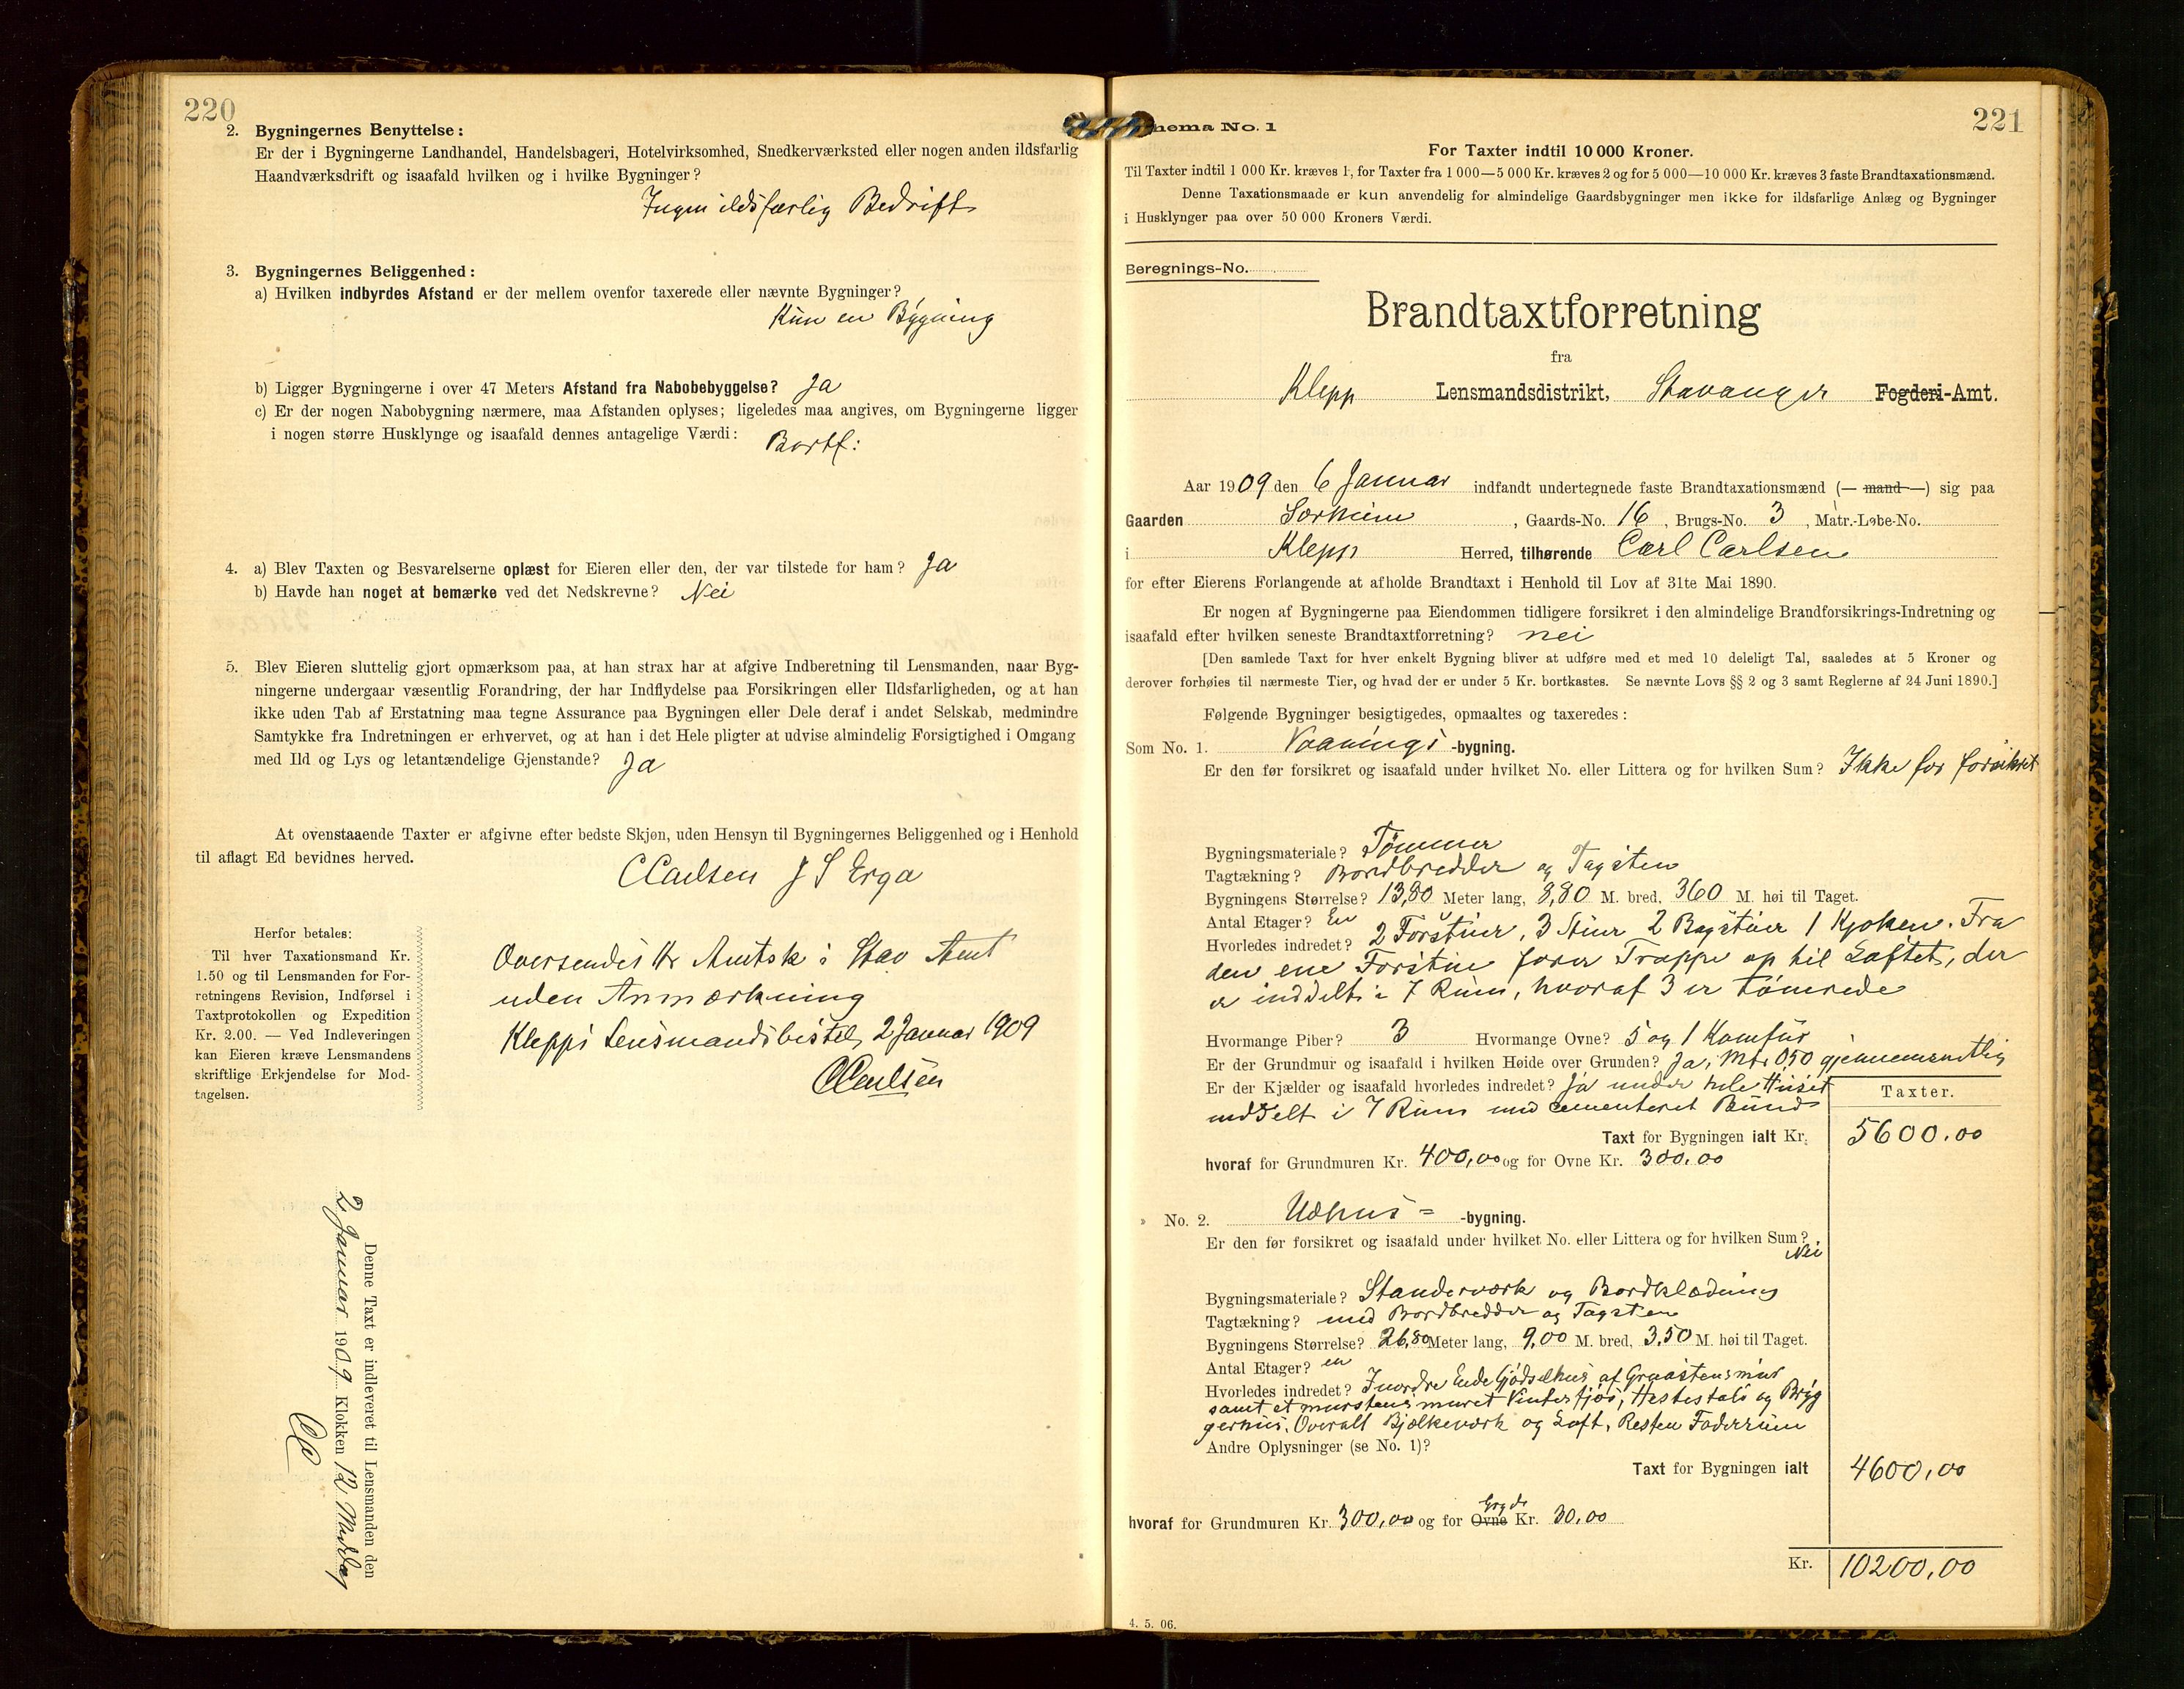 220
2. Bygningernes Benyttelse:
Er der i Bygningerne Landhandel, Handelsbageri, Hotelvirksomhed, Snedkerværksted eller nogen anden ildsfarlig
Haandværksdrift og isaafald hvilken og i hvilke Bygninger?
Ingen ildsfarlig Bedrift
3. Bygningernes Beliggenhed:
a) Hvilken indbyrdes Afstand er der mellem ovenfor taxerede eller nævnte Bygninger?
Kun en Bygning
b) Ligger Bygningerne i over 47 Meters Afstand fra Nabobebyggelse? Ja
c) Er der nogen Nabobygning nærmere, maa Afstanden oplyses; ligeledes maa angives, om Bygningerne ligger
i nogen større Husklynge og isaafald dennes antagelige Værdi: Bortf:
4. a) Blev Taxten og Besvarelserne oplæst for Eieren eller den, der var tilstede for ham? Ja
b) Havde han noget at bemærke ved det Nedskrevne? Nei
5. Blev Eieren sluttelig gjort opmærksom paa, at han strax har at afgive Indberetning til Lensmanden, naar Byg-
ningerne undergaar væsentlig Forandring, der har Indflydelse paa Forsikringen eller Ildsfarligheden, og at han
ikke uden Tab af Erstatning maa tegne Assurance paa Bygningen eller Dele deraf i andet Selskab, medmindre
Samtykke fra Indretningen er erhvervet, og at han i det Hele pligter at udvise almindelig Forsigtighed i Omgang
med Ild og Lys og letantændelige Gjenstande? Ja
At ovenstaaende Taxter er afgivne efter bedste Skjøn, uden Hensyn til Bygningernes Beliggenhed og i Henhold
til aflagt Ed bevidnes herved.
CCarlsen J S Erga
Herfor betales:
Til hver Taxationsmand Kr.
1.50 og til Lensmanden for For-
retningens Revision, Indførsel i
Taxtprotokollen og Expedition
Kr. 2.00. — Ved Indleveringen
kan Eieren kræve Lensmandens
skriftlige Erkjendelse for Mod-
tagelsen.
Oversendes Hr Amtsk i Stav Amt
uden Anmærkning
Klepps Lensmandsbestil, 2 Januar 1909
CCarlsen
Denne Taxt er indleveret til Lensmanden den
2 Januar 1909 Klokken 12 Middag
CC
221
Schema No. 1
For Taxter indtil 10 000 Kroner.
Til Taxter indtil 1 000 Kr. kræves 1, for Taxter fra 1 000—5 000 Kr. kræves 2 og for 5 000—10 000 Kr. kræves 3 faste Brandtaxationsmænd.
Denne Taxationsmaade er kun anvendelig for almindelige Gaardsbygninger men ikke for ildsfarlige Anlæg og Bygninger
i Husklynger paa over 50 000 Kroners Værdi.
Beregnings-No.
Brandtaxtforretning
fra
Klepp Lensmandsdistrikt, Stavanger Fogderi-Amt.
Aar 1909 den 6 Januar indfandt undertegnede faste Brandtaxationsmænd (— mand —) sig paa
Gaarden Sørheim, Gaards-No. 16, Brugs-No. 3, Matr.-Løbe-No.
i Klepp Herred, tilhørende Carl Carlsen
for efter Eierens Forlangende at afholde Brandtaxt i Henhold til Lov af 31te Mai 1890.
Er nogen af Bygningerne paa Eiendommen tidligere forsikret i den almindelige Brandforsikrings-Indretning og
isaafald efter hvilken seneste Brandtaxtforretning? nei
[Den samlede Taxt for hver enkelt Bygning bliver at udføre med et med 10 deleligt Tal, saaledes at 5 Kroner og
derover forhøies til nærmeste Tier, og hvad der er under 5 Kr. bortkastes. Se nævnte Lovs §§ 2 og 3 samt Reglerne af 24 Juni 1890.]
Følgende Bygninger besigtigedes, opmaaltes og taxeredes:
Som No. 1. Vaanings-bygning.
Er den før forsikret og isaafald under hvilket No. eller Littera og for hvilken Sum? Ikke før forsikret
Bygningsmateriale? Tømmer
Tagtækning? Bordbredder og Tagsten
Bygningens Størrelse? 13,80 Meter lang, 8,80 M. bred, 360 M. høi til Taget.
Antal Etager? En
Hvorledes indredet? 2 Forstuer, 3 Stuer 2 Bagstuer 1 Kjøken. Fra
den ene Forstue fører Trappe op til Loftet, der
er inddelt i 7 Rum, hvoraf 3 er tømrede
Hvormange Piber? 3 Hvormange Ovne? 5 og 1 Komfur
Er der Grundmur og isaafald i hvilken Høide over Grunden? Ja, Mtr 0,50 gjennemsnitlig
Er der Kjælder og isaafald hvorledes indredet? Ja under hele Huset
inddelt i 7 Rum med cementeret Bund
Taxter.
Taxt for Bygningen ialt Kr. 5600.00
hvoraf for Grundmuren Kr. 400,00 og for Ovne Kr. 300.00
» No. 2. Udhus= -bygning.
Er den før forsikret og isaafald under hvilket No. eller Littera og for hvilken Sum?
Nei
Bygningsmateriale? Standerværk og Bordklædning
Tagtækning? med Bordbredder og Tagsten
Bygningens Størrelse? 26,80 Meter lang, 9,00 M. bred, 3,50 M. høi til Taget.
Antal Etager? en
Hvorledes indredet? I nordre Ende Gjødselhus af Graastensmur
samt et murstens muret Vinterfjøs, Hestestald og Bryg
gerhus. Overalt Bjælkeværk og Loft. Resten Foderrum
Andre Oplysninger (se No. 1)?
Taxt for Bygningen ialt 4600,00
Gryde
hvoraf for Grundmuren Kr. 300,00 og for Ovne Kr. 30,00
Kr. 10200,00
4. 5. 06.